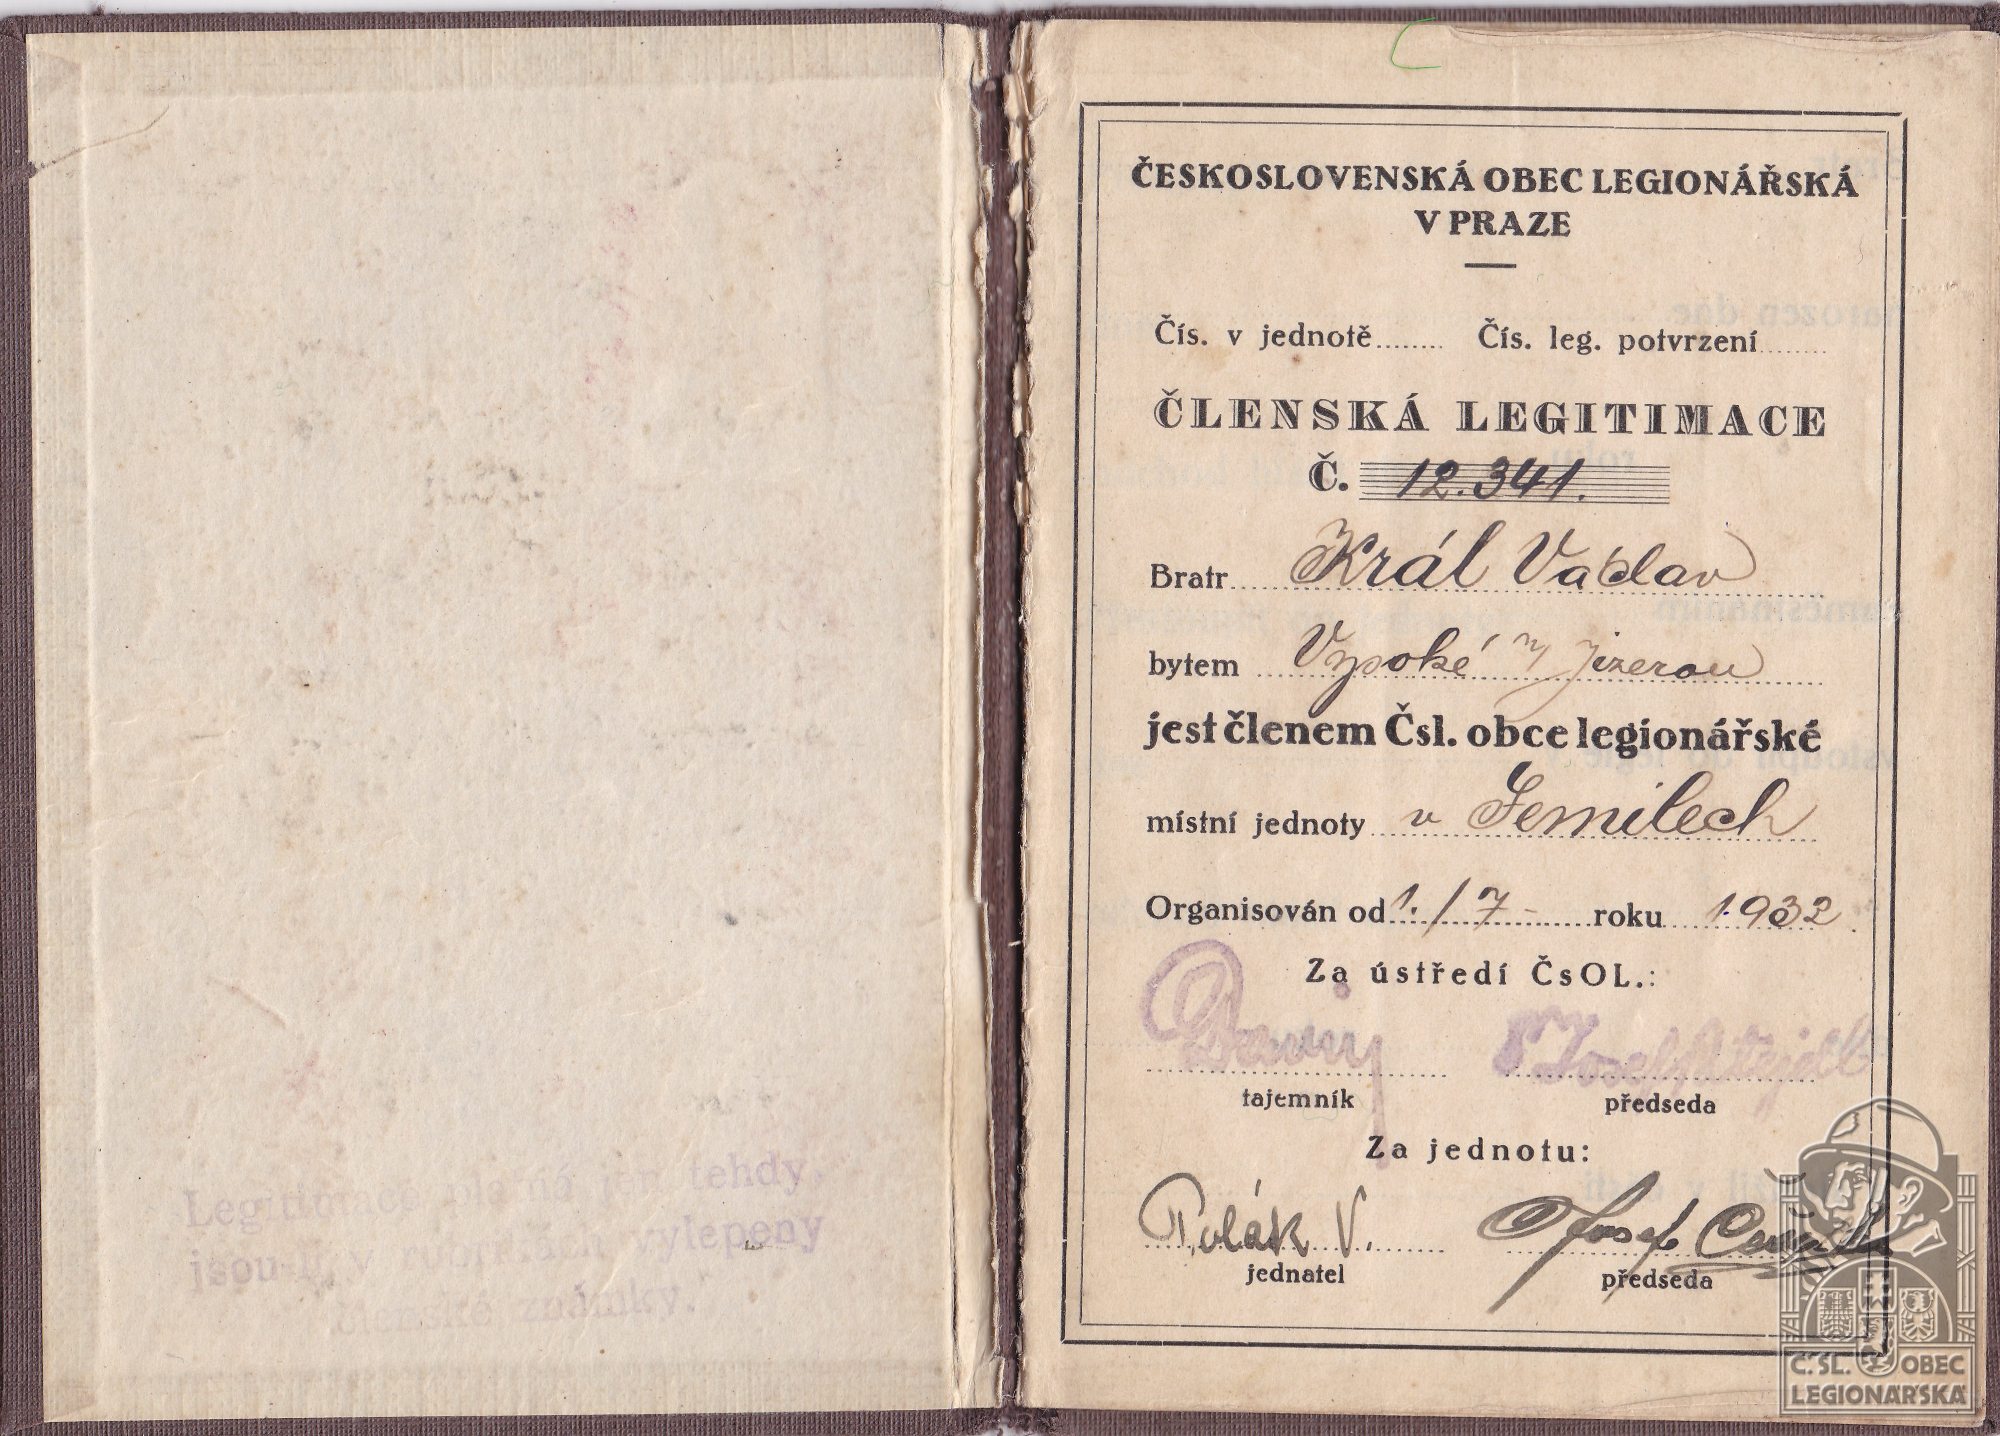 Legitimace platná jen tehdy,
jsou-li v rubrikách vylepeny
členské známky.
ČESKOSLOVENSKÁ OBEC LEGIONÁŘSKÁ
V PRAZE
Čís. v jednotě........ Čís. leg. potvrzení........
ČLENSKÁ LEGITIMACE
Č. 12.341.
Bratr Král Václav
bytem Vysoké n/ Jizerou
jest členem Čsl. obce legionářské
místní jednoty v Semilech
Organisován od 1./7- roku 1932
Za ústředí ČsOL.:
Josef
tajemník předseda
Za jednotu:
Polák V. Josef
jednatel předseda
Č. SL. OBEC
LEGIONÁŘSKÁ